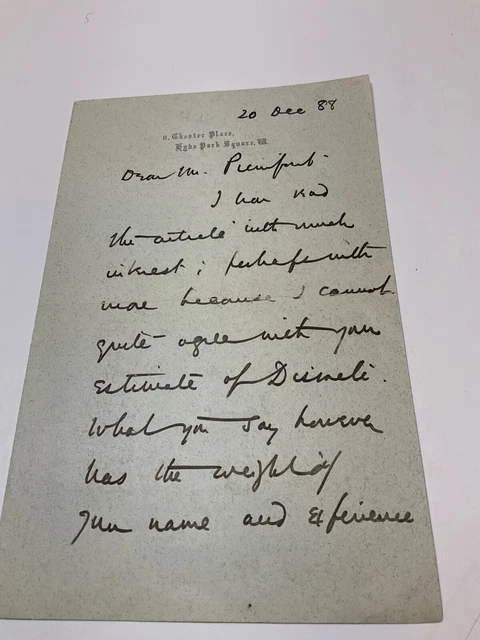 20 Dec 88
Chester Place,
Hyde Park Square, W.
Dear Mr.
I have read
the article with much
interest; perhaps with
more because I cannot
quite agree with your
estimate of Disraeli.
What you say however
has the weight of
your name and experience